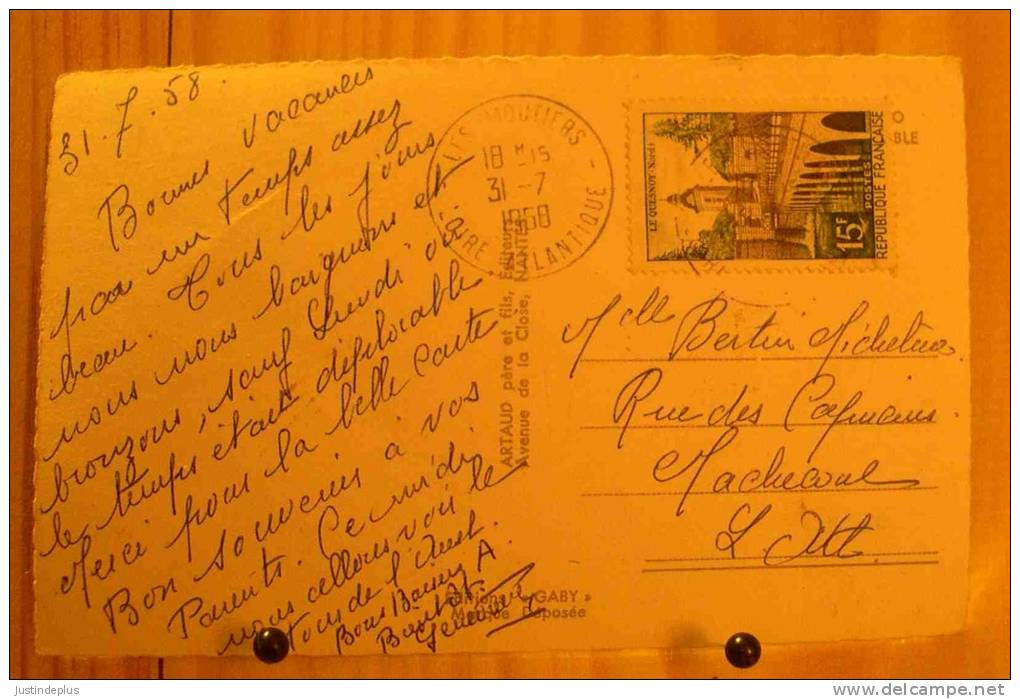 31.7.58.
Bonnes vacances
par un temps assez
beau. Tous les jours
nous nous baignons et
bronzons, sauf Lundi où
le temps était déplorable.
Merci pour la belle carte
Bon souvenir à vos
Parents. Ce midi
nous allons voir le
tour de l'Ouest.
Bons Baisers A
Geneviève
LES MOUTIERS
18 H 15
31-7
1958
LOIRE ATLANTIQUE
ARTAUD père et fils, Editeurs
Avenue de la Close, NANTES
Editions "GABY"
Marque Déposée
LE QUESNOY (Nord)
15F
POSTES
REPUBLIQUE FRANÇAISE
O
BLE
Mlle Bertin Micheline
Rue des Capucins.
Machecoul
L. Atl.
justindeplus
delcampe.net